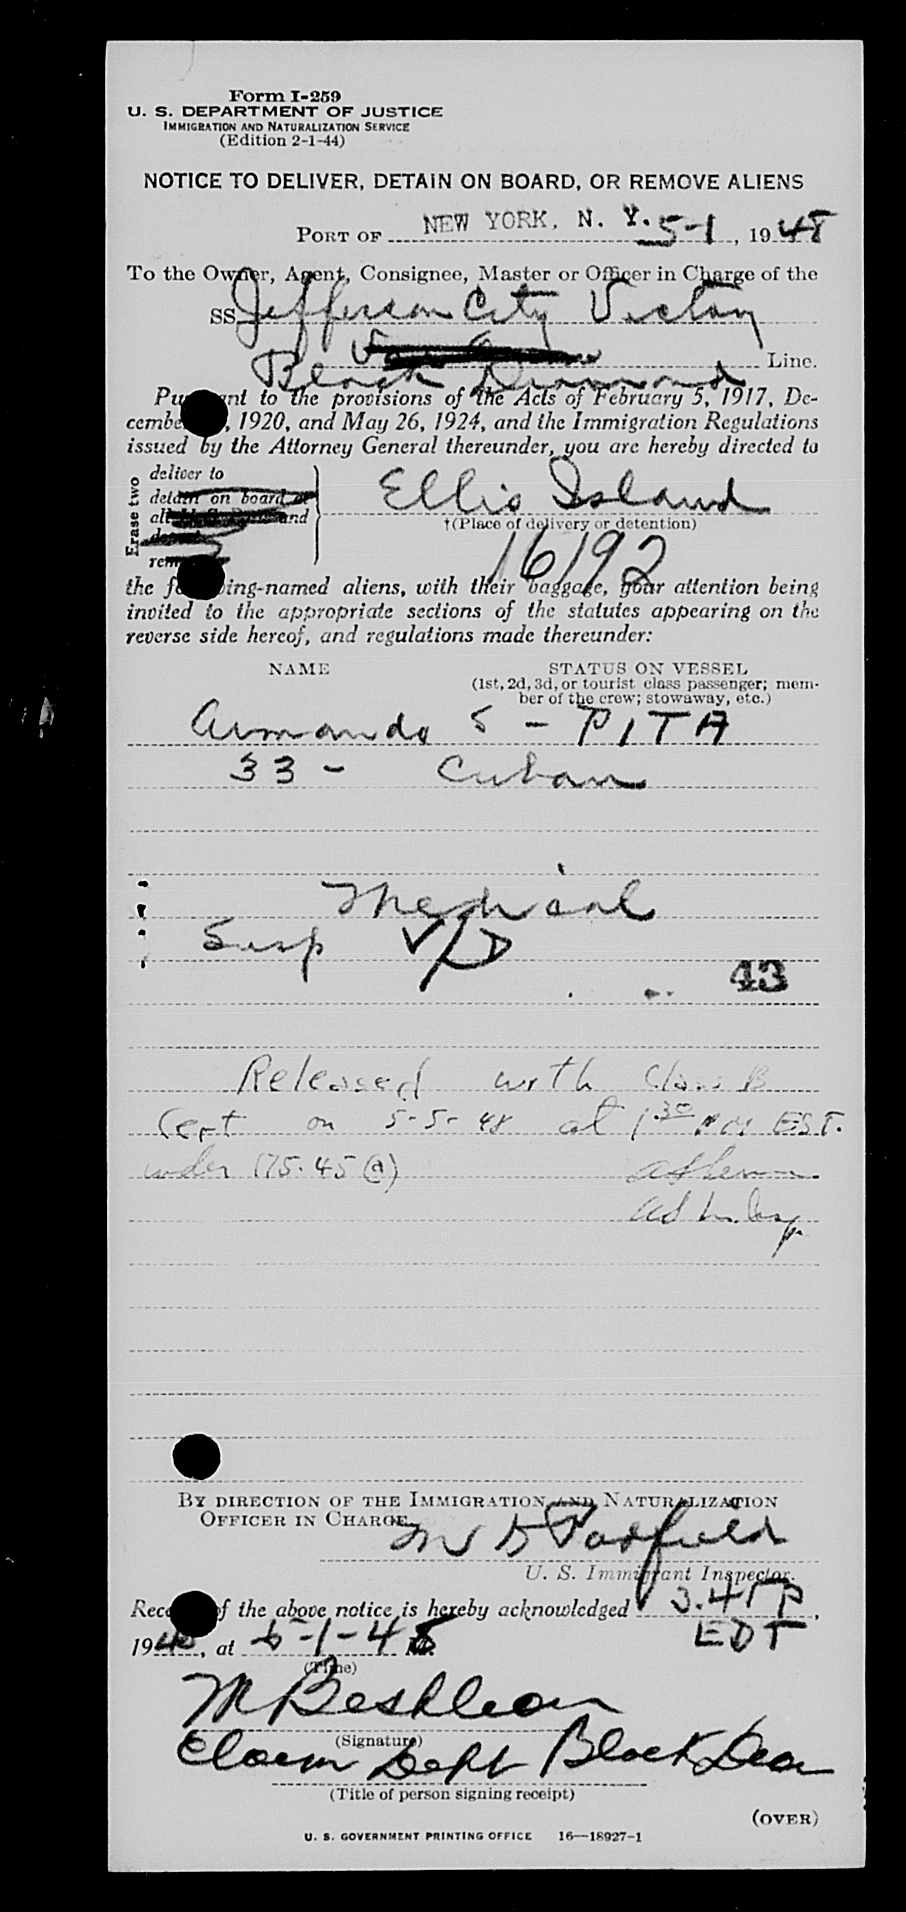 Form I-259
U. S. DEPARTMENT OF JUSTICE
IMMIGRATION AND NATURALIZATION SERVICE
(Edition 2-1-44)
NOTICE TO DELIVER, DETAIN ON BOARD, OR REMOVE ALIENS
PORT OF NEW YORK, N. Y. 5-1, 1948
To the Owner, Agent, Consignee, Master or Officer in Charge of the
SS Jefferson City Victory
Black Diamond Line.
Pursuant to the provisions of the Acts of February 5, 1917, De-
cember, 1920, and May 26, 1924, and the Immigration Regulations
issued by the Attorney General thereunder, you are hereby directed to
Erase two
deliver to
detain on board
Ellis Island
†(Place of delivery or detention)
16192
the following-named aliens, with their baggage, your attention being
invited to the appropriate sections of the statutes appearing on the
reverse side hereof, and regulations made thereunder:
NAME STATUS ON VESSEL
(1st, 2d, 3d, or tourist class passenger; mem-
ber of the crew; stowaway, etc.)
Armando S - PITA
33 - Cuban
Medical
Susp V/D
43
Released with Class B
Cert on 5-5-48 at 1:30 PM EST.
under 175.45(a)
BY DIRECTION OF THE IMMIGRATION AND NATURALIZATION
OFFICER IN CHARGE
U. S. Immigrant Inspector.
Receipt of the above notice is hereby acknowledged 3.45 P,
EDT
1948, at 5-1-48 M.
(Time)
(Signature)
Claim Dept Black Diam
(Title of person signing receipt)
(OVER)
U. S. GOVERNMENT PRINTING OFFICE 16—18927-1